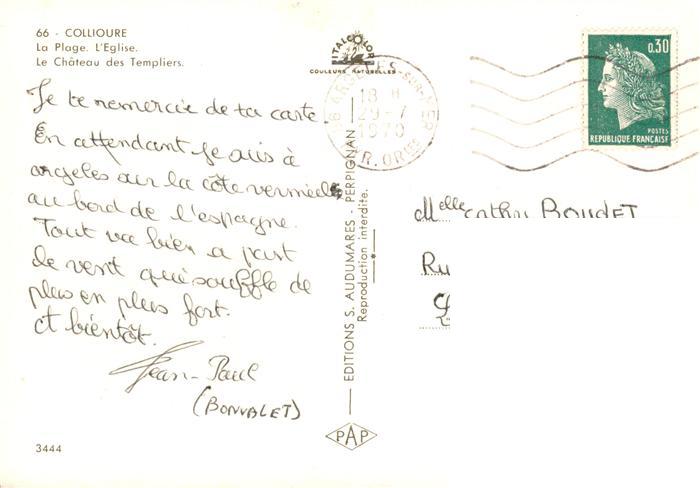 66 - COLLIOURE
La Plage. L'Eglise.
Le Château des Templiers.
ITALCOLOR
COULEURS NATURELLES
66 ARGELES-SUR-MER
18 H
29-7
1970
PYR. ORIES
0,30
POSTES
REPUBLIQUE FRANÇAISE
Je te remercie de ta carte.
En attendant je suis à
argeles sur la côte vermeille
au bord de l'espagne.
Tout va bien a part
le vent qui souffle de
plus en plus fort.
et bientôt.
Jean-Paul
(BONVALET)
EDITIONS S. AUDUMARES - PERPIGNAN
Reproduction interdite.
Melle Cathy BOUDET
Ru
3444
PAP